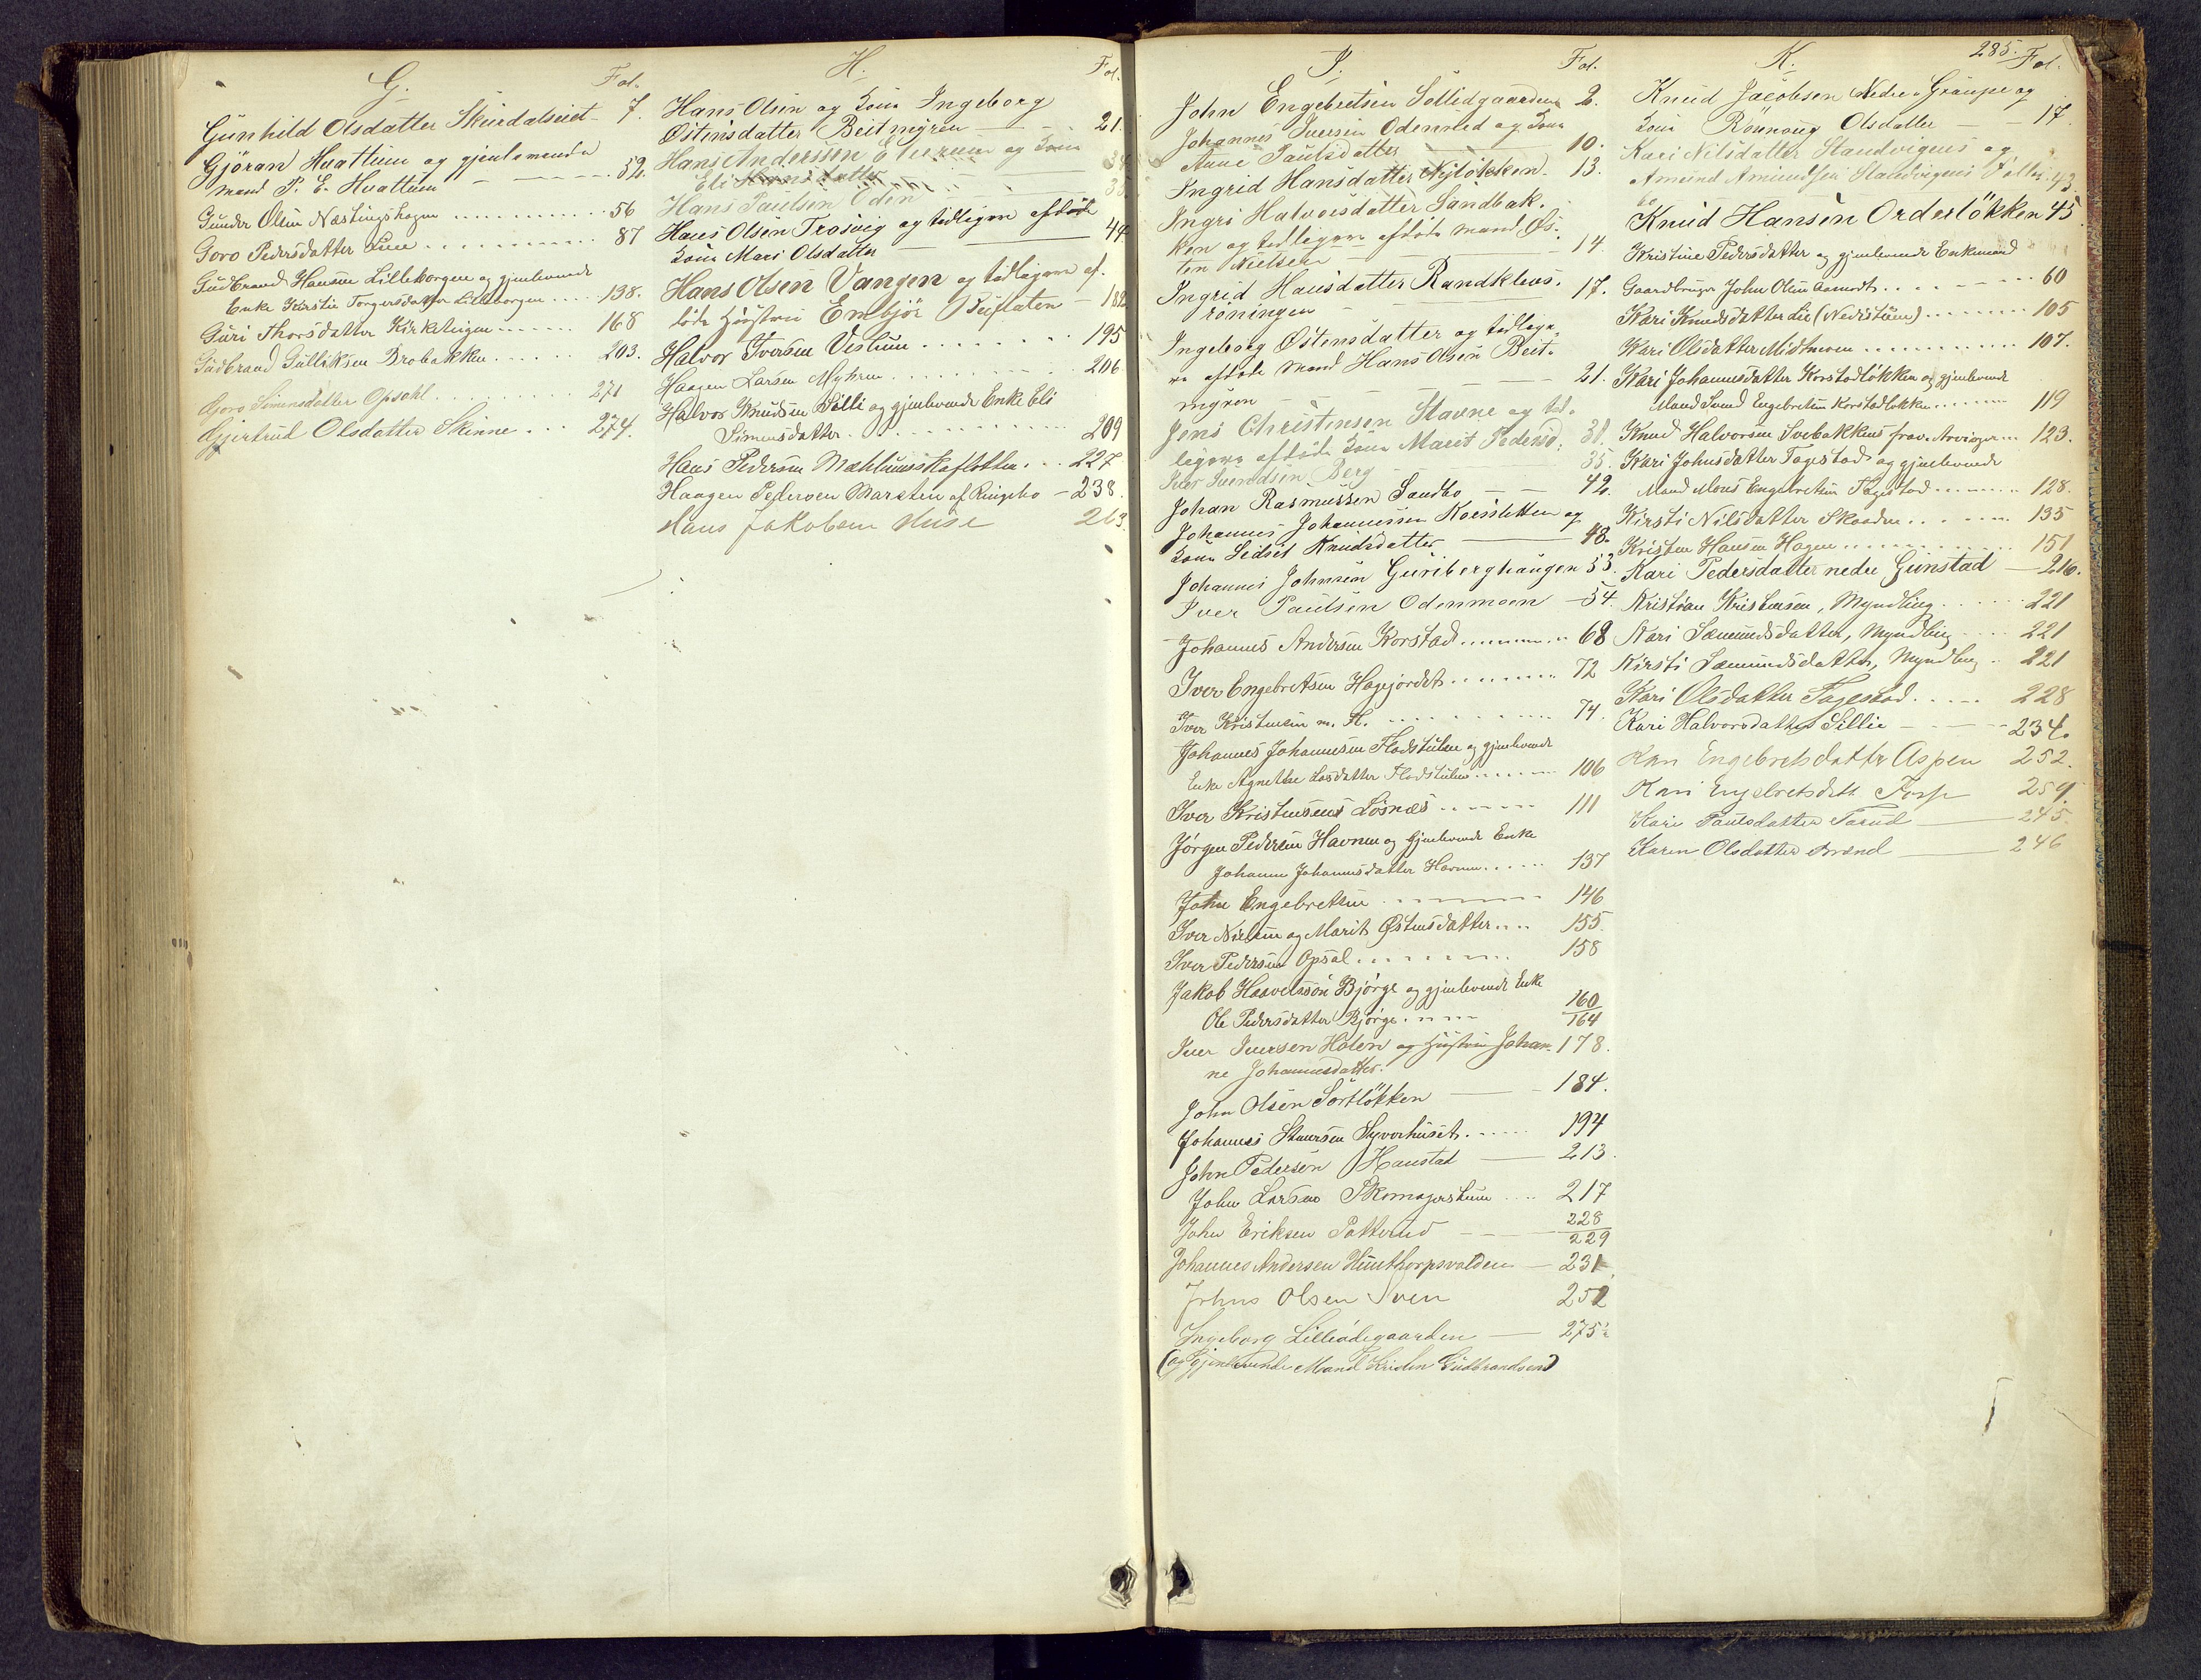 G.
Fol.
Gunhild Olsdatter Skurdalseiet - 7.
Gjöran Huattum og gjenlevende
mand P. E. Huattum - - - - 52.
Gunder Olsen Næstingshagen ........ 56
Goro Pedersdatter Lien ........ 87
Gudbrand Hansen Lilleborgen og gjenlevende
Enke Kirstie Torgersdatter Lilleborgen .... 138.
Guri Thorsdatter Kirketeigen ...... 168
Gudbrand Gulliksen Brobakken ...... 203.
Gjoro Simensdatter Opsahl ........ 271
Gjertrud Olsdatter Skinne ... 274.
H.
Fol.
Hans Olsen og Kone Ingeborg
Østensdatter Beitmyren - - - 21.
Hans Anderssen Elverum og Kone
Eli Hansdatter
Hans Paulsen Oden
Hans Olsen Trosvig og tidligere afdöde
Kone Mari Olsdatter 44
Hans Olsen Vangen og tidligere af-
döde Hustru Embjör Buflaten - 182
Halvor Iversen Veslum ........ 195
Haagen Larsen Myhren ........ 206
Halvor Knudsen Silli og gjenlevende Enke Eli
Simensdatter ........ 209
Hans Pedersen Mæhlumsskaflotten ... 227
Haagen Pedersen Marsten af Ringebo - 238.
Hans Jakobsen Huse 263.
I.
Fol.
John Engebretsen Sollidgaarden 2.
Johannes Iversen Odensted og Kone
Anne Paulsdatter 10.
Ingrid Hansdatter Nyløkken. 13.
Ingri Halvorsdatter Sandbak-
ken og tidligere afdöde mand Øs-
ten Nielsen - 14.
Ingrid Hansdatter Randklevs-
röningen - 17.
Ingeborg Østensdatter og tidlige-
re afdöde Mand Hans Olsen Beit-
myren - - - 21.
Jens Christensen Stavne og tid-
ligere afdöde Kone Marit Pedersd. 31.
Iver Svendsen Berg - 35.
Johan Rasmussen Sandbo - - 42.
Johannes Johannessen Kornsletten og
Kone Sidsel Knudsdatter - 48.
Johannes Johnsen Guriberghaugen 53.
Iver Paulsen Odenmoen - 54.
Johannes Andersen Korstad ........ 68
Iver Engebretsen Hagejordet ........ 72
Iver Kristensen m. H. ........ 74.
Johannes Johannesen Flodstulen og gjenlevende
Enke Agnethe Larsdatter Flodstulen ...... 106
Iver Kristensens Løsnæs ...... 111
Jörgen Pedersen Havnen og Gjenlevende Enke
Johanne Johannesdatter Havnen ..... 137
John Engebretsen ........ 146
Iver Nielsen og Marit Østensdatter .... 155.
Iver Pedersen Opsal ........ 158
Jakob Haavelssön Bjørge og gjenlevende Enke
Ole Pedersdatter Bjørge ...... 160
164
Iver Iversen Holen og Hustru Johan- 178.
ne Johannesdatter.
John Olsen Sörtlökken - 184.
Johannes Stenersen Syverhuset ...... 194
John Pedersen Haustad - 213.
John Larsen Skomagerstuen .... 217
John Eriksen Pottrud - 228
229
Johannes Andersen Hunthorpsvolden - 231
Johns Olsen Iven 252
Ingeborg Lilleödegaarden - 275
(og Gjenlevende Mand Kristen Gudbrandsen)
285.
K.
Fol.
Knud Jacobsen Nedre-Graupe og
Kone Rönnoug Olsdatter - - 17.
Kari Nilsdatter Standvigens og
Amund Amundsen Standvigens 43.
Knud Hansen Orderlökken 45
Kristine Pedersdatter og gjenlevende Enkemand
Gaardbruger John Olsen Aamodt ........ 60
Kari Knudsdatter Lie (Nedistuen) ........ 105
Kari Olsdatter Midtmoen ........ 107.
Kari Johannesdatter Korstadløkken og gjenlevende
Mand Svend Engebretsen Korstadløkken ...... 119
Knud Halvorsen Svebakkens frav. Arvinger ... 123.
Kari Johnsdatter Fagestad og gjenlevende
Mand Mons Engebretsen Fagestad ........ 128.
Kirsti Nilsdatter Skaaden ...... 135
Kristen Hansen Hagen ........ 151
Kari Pedersdatter nedre Gunstad - 216.
Kristian Kristensen, Myndling ...... 221
Kari Sæmundsdatter, Myndling .... 221
Kirsti Sæmundsdatter, Myndling .. 221
Kari Olsdatter Fagestad ...... 228
Kari Halvorsdatter Sillie - - - 234.
Kari Engebretsdatter Aspen 252.
Kari Engebretsdatt Forp 259.
Kari Paulsdatter Farud - 245.
Karen Olsdatter Brænd - 246